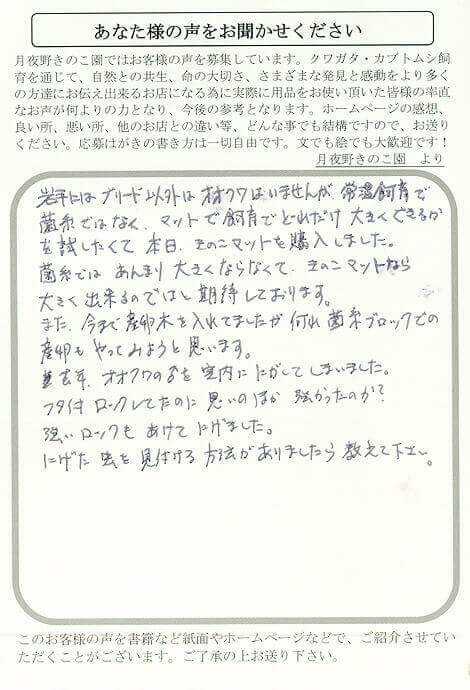 あなた様の声をお聞かせください
月夜野きのこ園ではお客様の声を募集しています。クワガタ・カブトムシ飼
育を通じて、自然との共生、命の大切さ、さまざまな発見と感動をより多く
の方達にお伝え出来るお店になる為に実際に用品をお使い頂いた皆様の率直
なお声が何よりの力となり、今後の参考となります。ホームページの感想、
良い所、悪い所、他のお店との違い等、どんな事でも結構ですので、お送り
ください。応募はがきの書き方は一切自由です。文でも絵でも大歓迎です！
月夜野きのこ園　より
岩手にはブリード以外はオオクワはいませんが、常温飼育で
菌糸ではなく、マットで飼育でどれだけ大きくできるか
を試したくて本日、きのこマットを購入しました。
菌糸ではあんまり大きくならなくて、きのこマットなら
大きく出来るのではと期待しております。
また、今まで産卵木を入れてましたが何れ菌糸ブロックでの
産卵もやってみようと思います。
去年、オオクワの♂を室内ににがしてしまいました。
フタ付ロックしてたのに思いのほか強かったのか？
強いロックもあけてにげました。
にげた虫を見付ける方法がありましたら教えて下さい。
このお客様の声を書籍など紙面やホームページなどで、ご紹介させてい
ただくことがございます。ご了承の上お送り下さい。